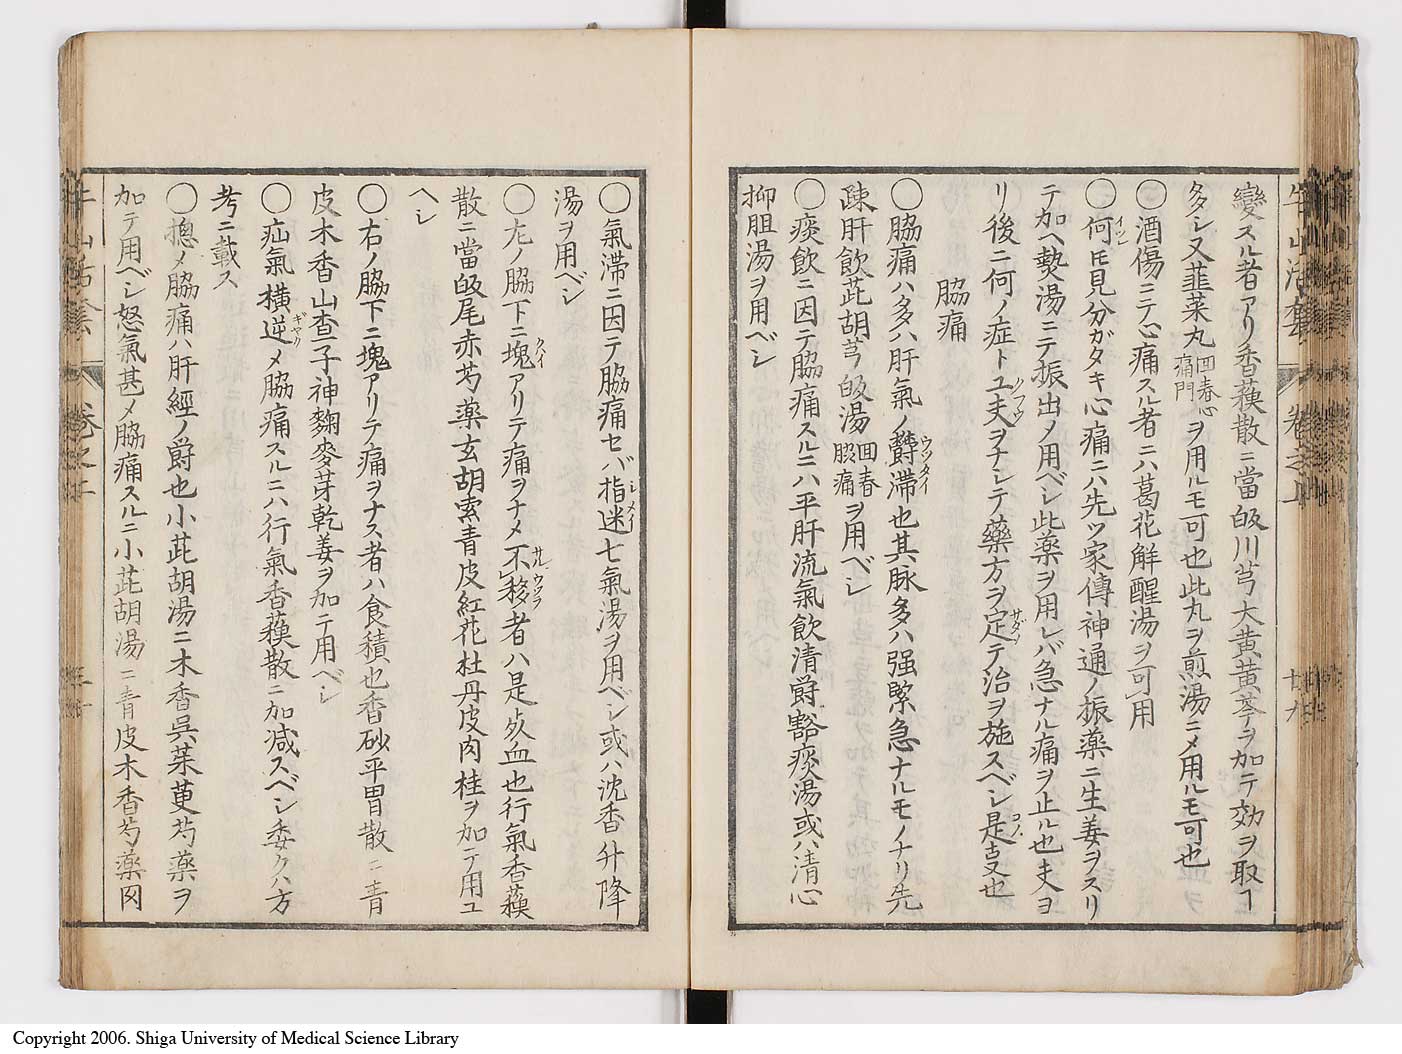 變スル者アリ香蘓散ニ當皈川芎大黄黄芩ヲ加テ効ヲ取ヿ
多シ又韮菜丸回春心痛門ヲ用ルモ可也此丸ヲ煎湯ニメ用ルモ可也
〇酒傷ニテ心痛スル者ニハ葛花解醒湯ヲ可用
〇何ヒ見分ガタキ心痛ニハ先ツ家傳神通ノ振薬ニ生姜ヲスリ
テ加ヘ𤍠湯ニテ振出メ用ベシ此薬ヲ用レバ急ナル痛ヲ止ル也夫ヨ
リ後ニ何ノ症ト工夫ヲナシテ藥方ヲ定テ治ヲ施スベシ是
也
脇痛
〇脇痛ハ多ハ肝氣ノ欝滞也其脉多ハ强緊急ナルモノナリ先
疎肝飲茈胡芎皈湯回春脇痛ヲ用ベシ
〇痰飲ニ因テ脇痛スルニハ平肝流氣飲清欝豁痰湯或ハ清心
抑胆湯ヲ用ベシ
〇氣滞ニ因テ脇痛セバ指迷七氣湯ヲ用ベシ或ハ沈香升降
湯ヲ用ベシ
〇左ノ脇下ニ塊アリテ痛ヲナメ不移者ハ是死血也行氣香蘓
散ニ當皈尾赤芍薬玄胡索青皮紅花牡丹皮肉桂ヲ加テ用ユ
ヘシ
〇右ノ脇下ニ塊アリテ痛ヲナス者ハ食積也香砂平胃散ニ青
皮木香山査子神麴麥芽乾姜ヲ加テ用ベシ
〇疝氣横逆メ脇痛スルニハ行氣香蘓散ニ加减スベシ委クハ方
考ニ載ス
〇摠メ脇痛ハ肝經ノ欝也小茈胡湯ニ木香呉茱萸芍薬ヲ
加テ用ベシ怒氣甚メ脇痛スルニ小茈胡湯ニ青皮木香芍薬
牛山活套
巻之上
廿九
Copyright 2006. Shiga University of Medical Science Library